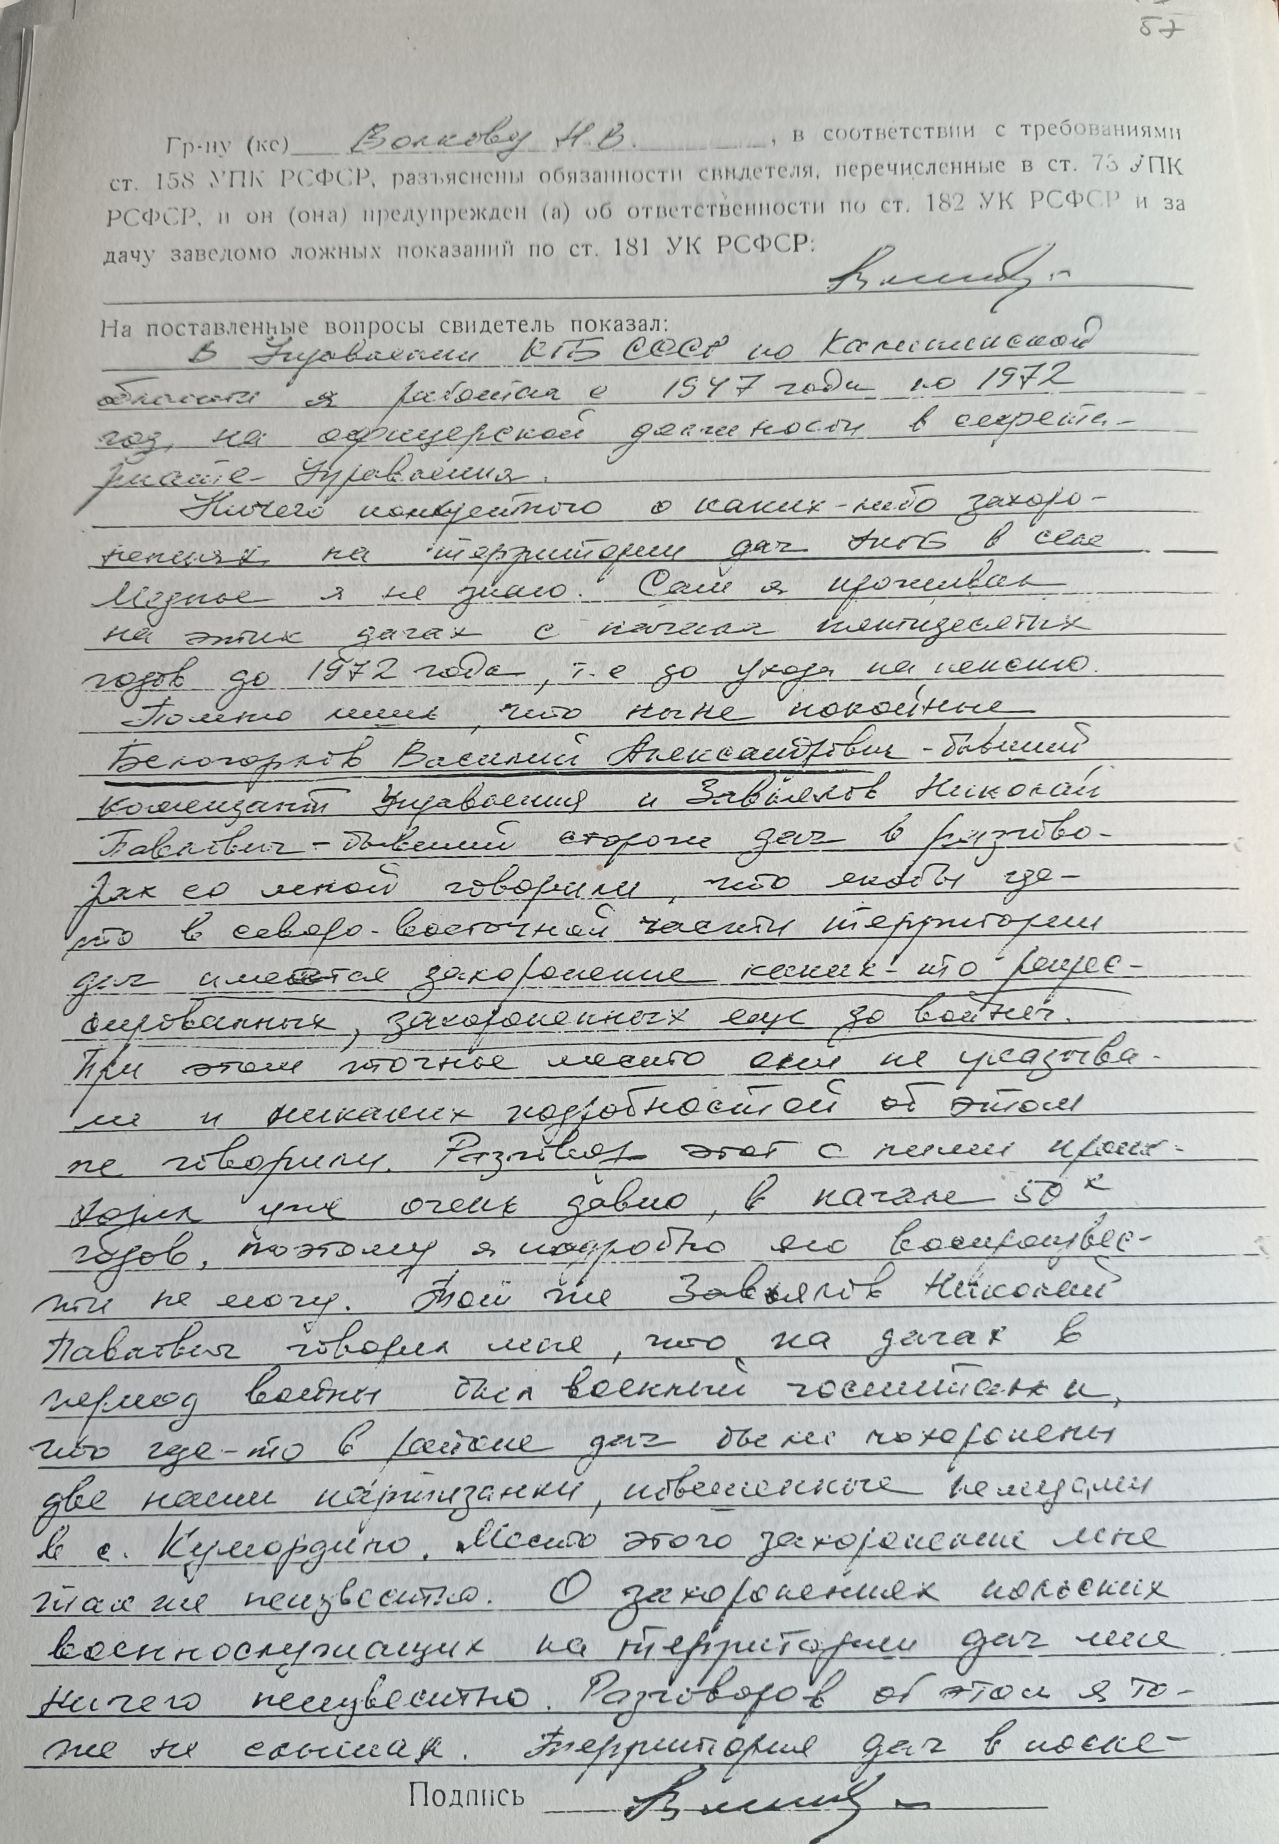 57
Гр-ну (ке) Волкову Н.В. , в соответствии с требованиями
ст. 158 УПК РСФСР, разъяснены обязанности свидетеля, перечисленные в ст. 73 УПК
РСФСР, и он (она) предупрежден (а) об ответственности по ст. 182 УК РСФСР и за
дачу заведомо ложных показаний по ст. 181 УК РСФСР:
На поставленные вопросы свидетель показал:
В Управлении КГБ СССР по Калининской
области я работал с 1947 года по 1972
год, на офицерской должности в секрета-
риате Управления.
Ничего конкретного о каких-либо захоро-
нениях на территории дач КГБ в селе
Медное я не знаю. Сам я проживал
на этих дачах с начала пятидесятых
годов до 1972 года, т.е до ухода на пенсию.
Помню лишь, что ныне покойные
Белогорлов Василий Александрович - бывший
комендант Управления и Завьялов Николай
Павлович - бывший сторож дач в разгово-
рах со мной говорили, что якобы где-
то в северо-восточной части территории
дач имеется захоронение каких-то репрес-
сированных, захороненных еще до войны.
При этом точное место они не указыва-
ли и никаких подробностей об этом
не говорили. Разговор этот с ними проис-
ходил уже очень давно, в начале 50х
годов, поэтому я подробно его воспроизвес-
ти не могу. Той же Завьялов Николай
Павлович говорил мне, что на дачах в
период войны был военный госпиталь и,
что где-то в районе дач были похоронены
две наши партизанки, повешенные немцами
в с. Кумордино. Место этого захоронение мне
также неизвестно. О захоронениях польских
военнослужащих на территории дач мне
ничего неизвестно. Разговоров об этом я то-
же не слышал. Территория дач в после-
Подпись